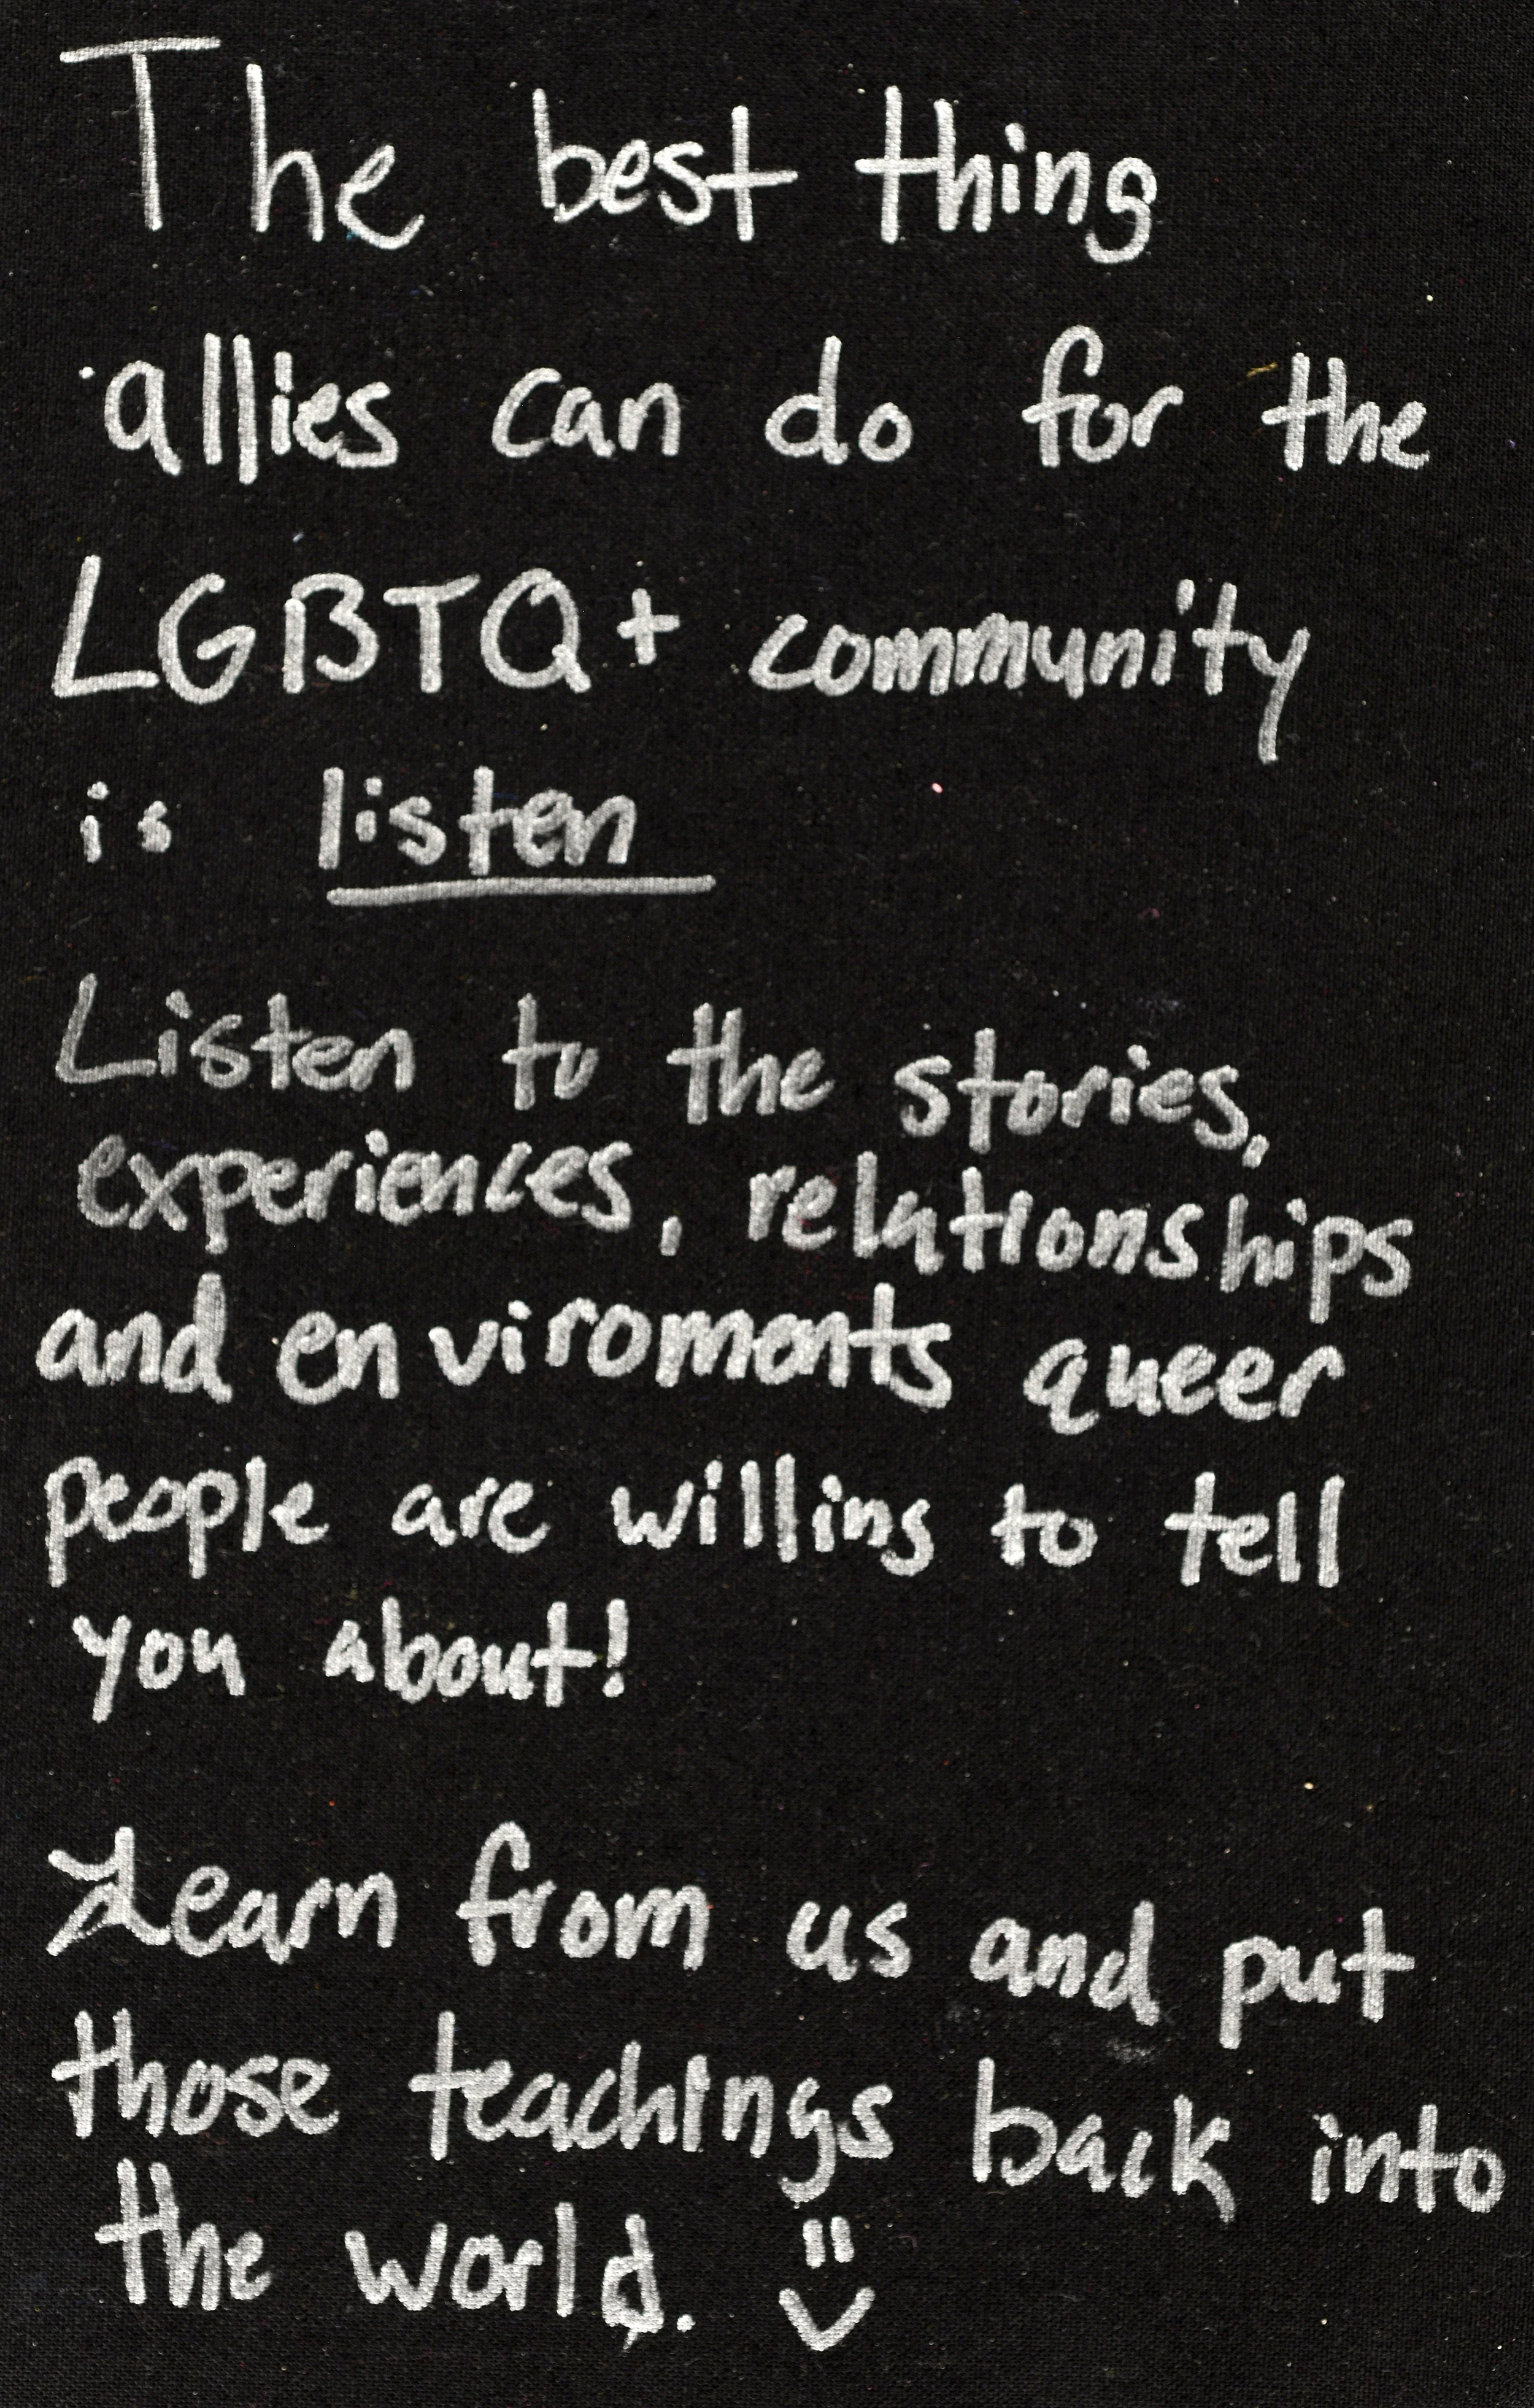 The best thing
allies can do for the
LGBTQ+ community
is listen
Listen to the stories,
experiences, relationships
and enviroments queer
people are willing to tell
you about!
Learn from us and put
those teachings back into
the world.